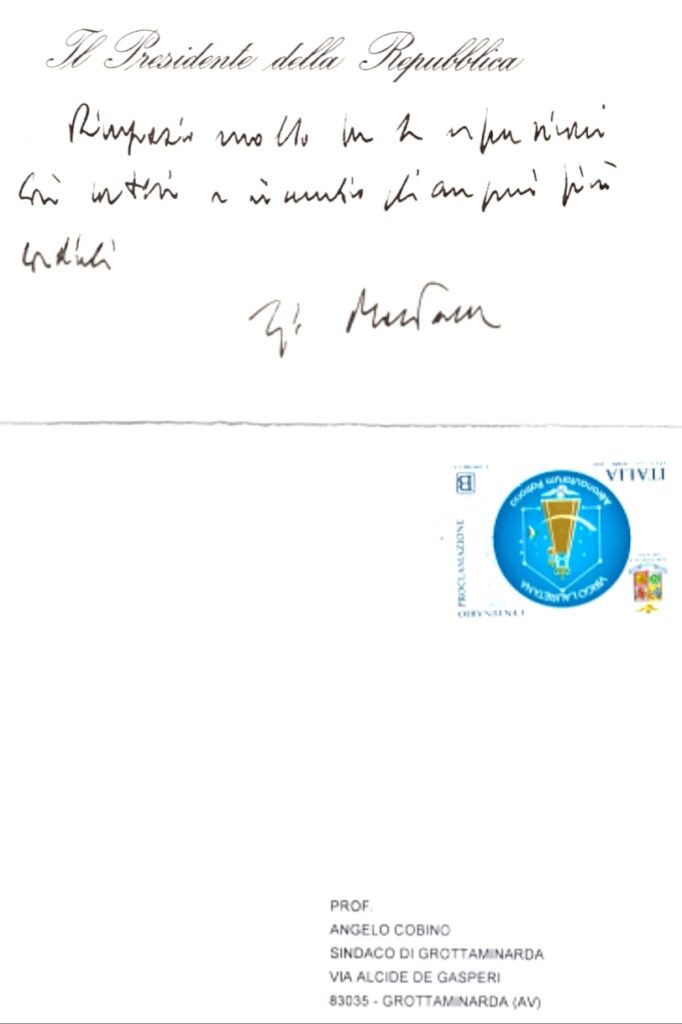 Il Presidente della Repubblica
Ringrazio molto per le espressioni
così cortesi e invio gli auguri più
cordiali
ITALIA
B
PROCLAMAZIONE
CENTENARIO
Aeronautarum Patrona
VIRGO LAURETANA
PROF.
ANGELO COBINO
SINDACO DI GROTTAMINARDA
VIA ALCIDE DE GASPERI
83035 - GROTTAMINARDA (AV)